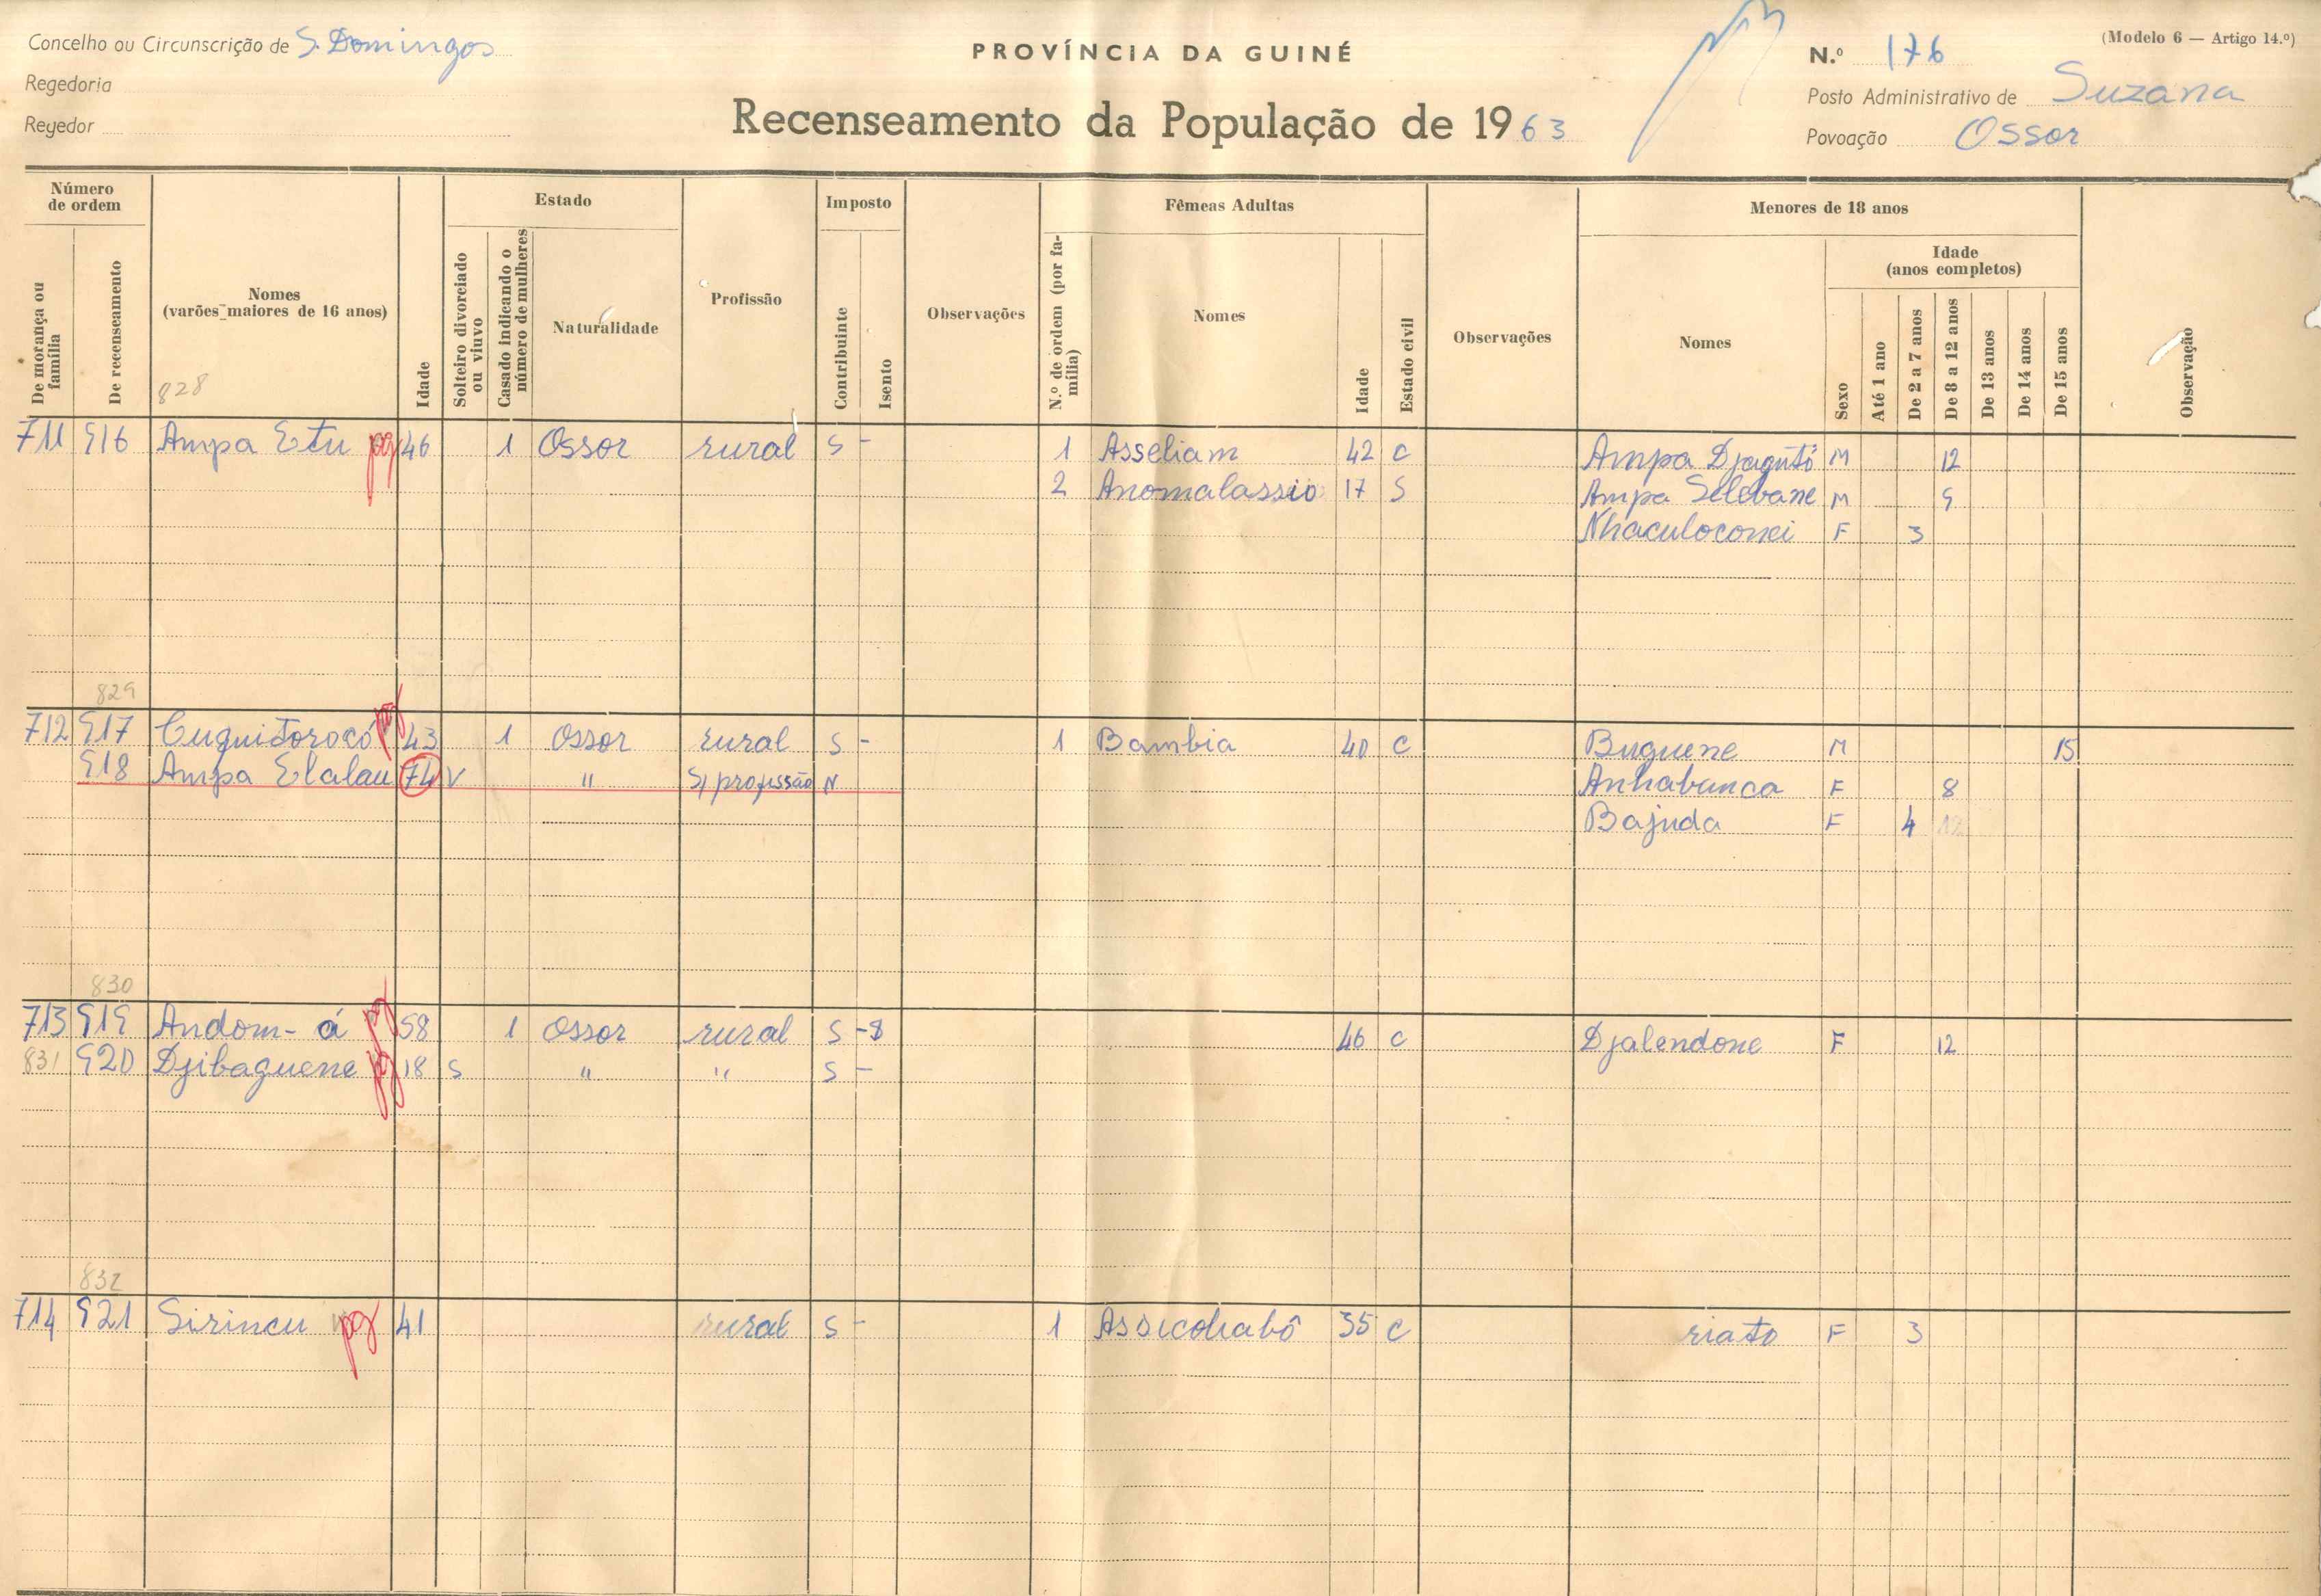 Concelho ou Circunscrição de S. Domingos
PROVÍNCIA DA GUINÉ
N.º 176
(Modelo 6 — Artigo 14.º)
Regedoria
Posto Administrativo de Suzana
Regedor
Recenseamento da População de 1963
Povoação Ossor
Número de ordem
De morança ou família
De recenseamento
Nomes (varões maiores de 16 anos)
828
Idade
Estado
Solteiro divorciado ou viuvo
Casado indicando o número de mulheres
Naturalidade
Profissão
Imposto
Contribuinte
Isento
Observações
Fêmeas Adultas
N.º de ordem (por família)
Nomes
Idade
Estado civil
Observações
Menores de 18 anos
Nomes
Sexo
Idade (anos completos)
Até 1 ano
De 2 a 7 anos
De 8 a 12 anos
De 13 anos
De 14 anos
De 15 anos
Observação
711 916 Ampa Etu pg 46 1 Ossor rural S - 1 Asseliam 42 C Ampa Djagutó M 12
2 Anomalassio 17 S Ampa Selebane M 9
Nhaculoconei F 3
829
712 917 Cuguitorocó pg 43 1 Ossor rural S - 1 Bambia 40 C Buguene M 15
918 Ampa Elalau 74 V " S/ profissão N Anhabunca F 8
Bajuda F 4
830
713 919 Andom-á pg 58 1 Ossor rural S -8 46 C Djalendone F 12
831 920 Djibaguene pg 18 S " " S -
832
714 921 Sirincu pg 41 rural S - 1 Assicohabô 35 C riato F 3